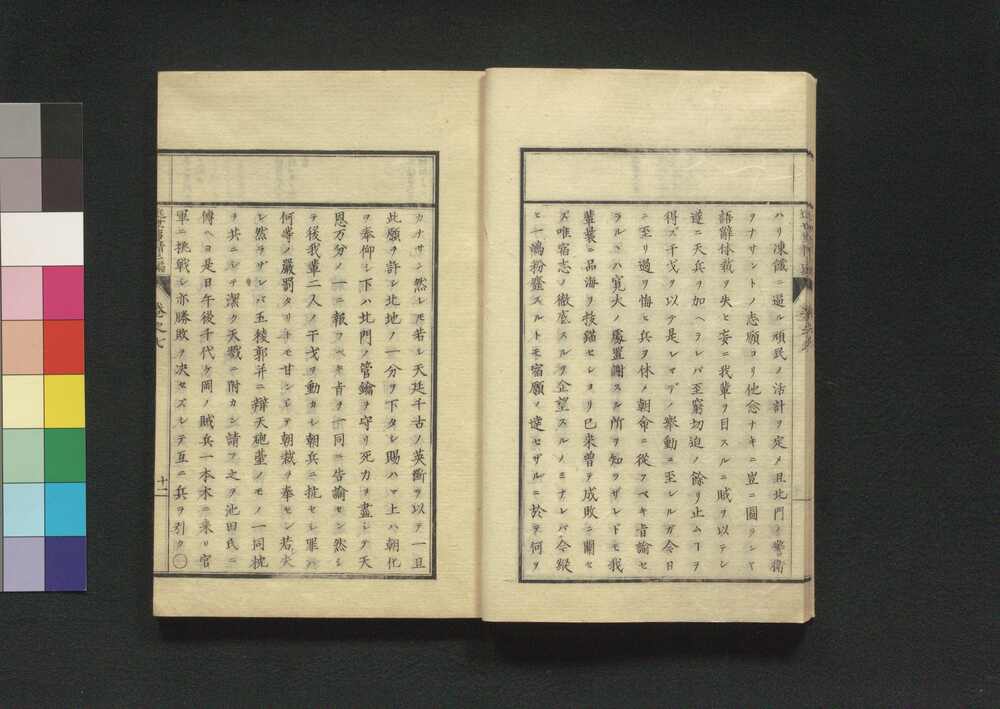 ハリ凍餓ニ逼ル頑民ノ活計ヲ定メ且北門ノ警衛
ヲナサントノ志願ヨリ他念ナキニ豈ニ圖ランヤ
語辭体裁ヲ失ヒ妄ニ我輩ヲ目スルニ賊ヲ以テシ
遂ニ天兵ヲ加ヘラレバ至窮切迫ノ餘リ止ムヿヲ
得ズ干戈ヲ以テ是レマデノ擧動ニ至レルガ今日
ニ至リ過ヲ悔ヒ兵ヲ休メ朝命ニ從フベキ旨諭セ
ラルヽハ寛大ノ處置謝スル所ヲ知ラザレドモ我
輩曩ニ品海ヲ抜錨セシヨリ已来曽テ成敗ニ關セ
ズ唯宿志ノ徹底スルヲ企望スルノミナレバ令縦
ヒ一嶋粉韲スルトモ宿願ノ達セザルニ於テ何ヲ
カナサン然レモ若シ天廷千古ノ英斷ヲ以テ一旦
此願ヲ許シ北地ノ一分ヲ下タシ賜ハヾ上ハ朝化
ヲ奉仰シ下ハ北門ノ管鑰ヲ守リ死力ヲ盡シテ天
恩万分ノ一ニ報フベキ旨ヲ一同ニ告諭セン然シ
テ後我輩二人ノ干戈ヲ動カシ朝兵ニ抗セシ罪ハ
何等ノ嚴罰タリトモ甘ンジテ朝裁ヲ奉セン若夫
レ然ラザレバ五稜郭并ニ辯天砲臺ノモノ一同枕
ヲ共ニシテ潔ク天戮ニ附カン請フ之ヲ池田氏ニ
傳ヘヨ是日午後千代ヶ岡ノ賊兵一本木ニ来リ官
軍ニ挑戦シ亦勝敗ヲ决セズシテ互ニ兵ヲ引ク
卷之七
十一